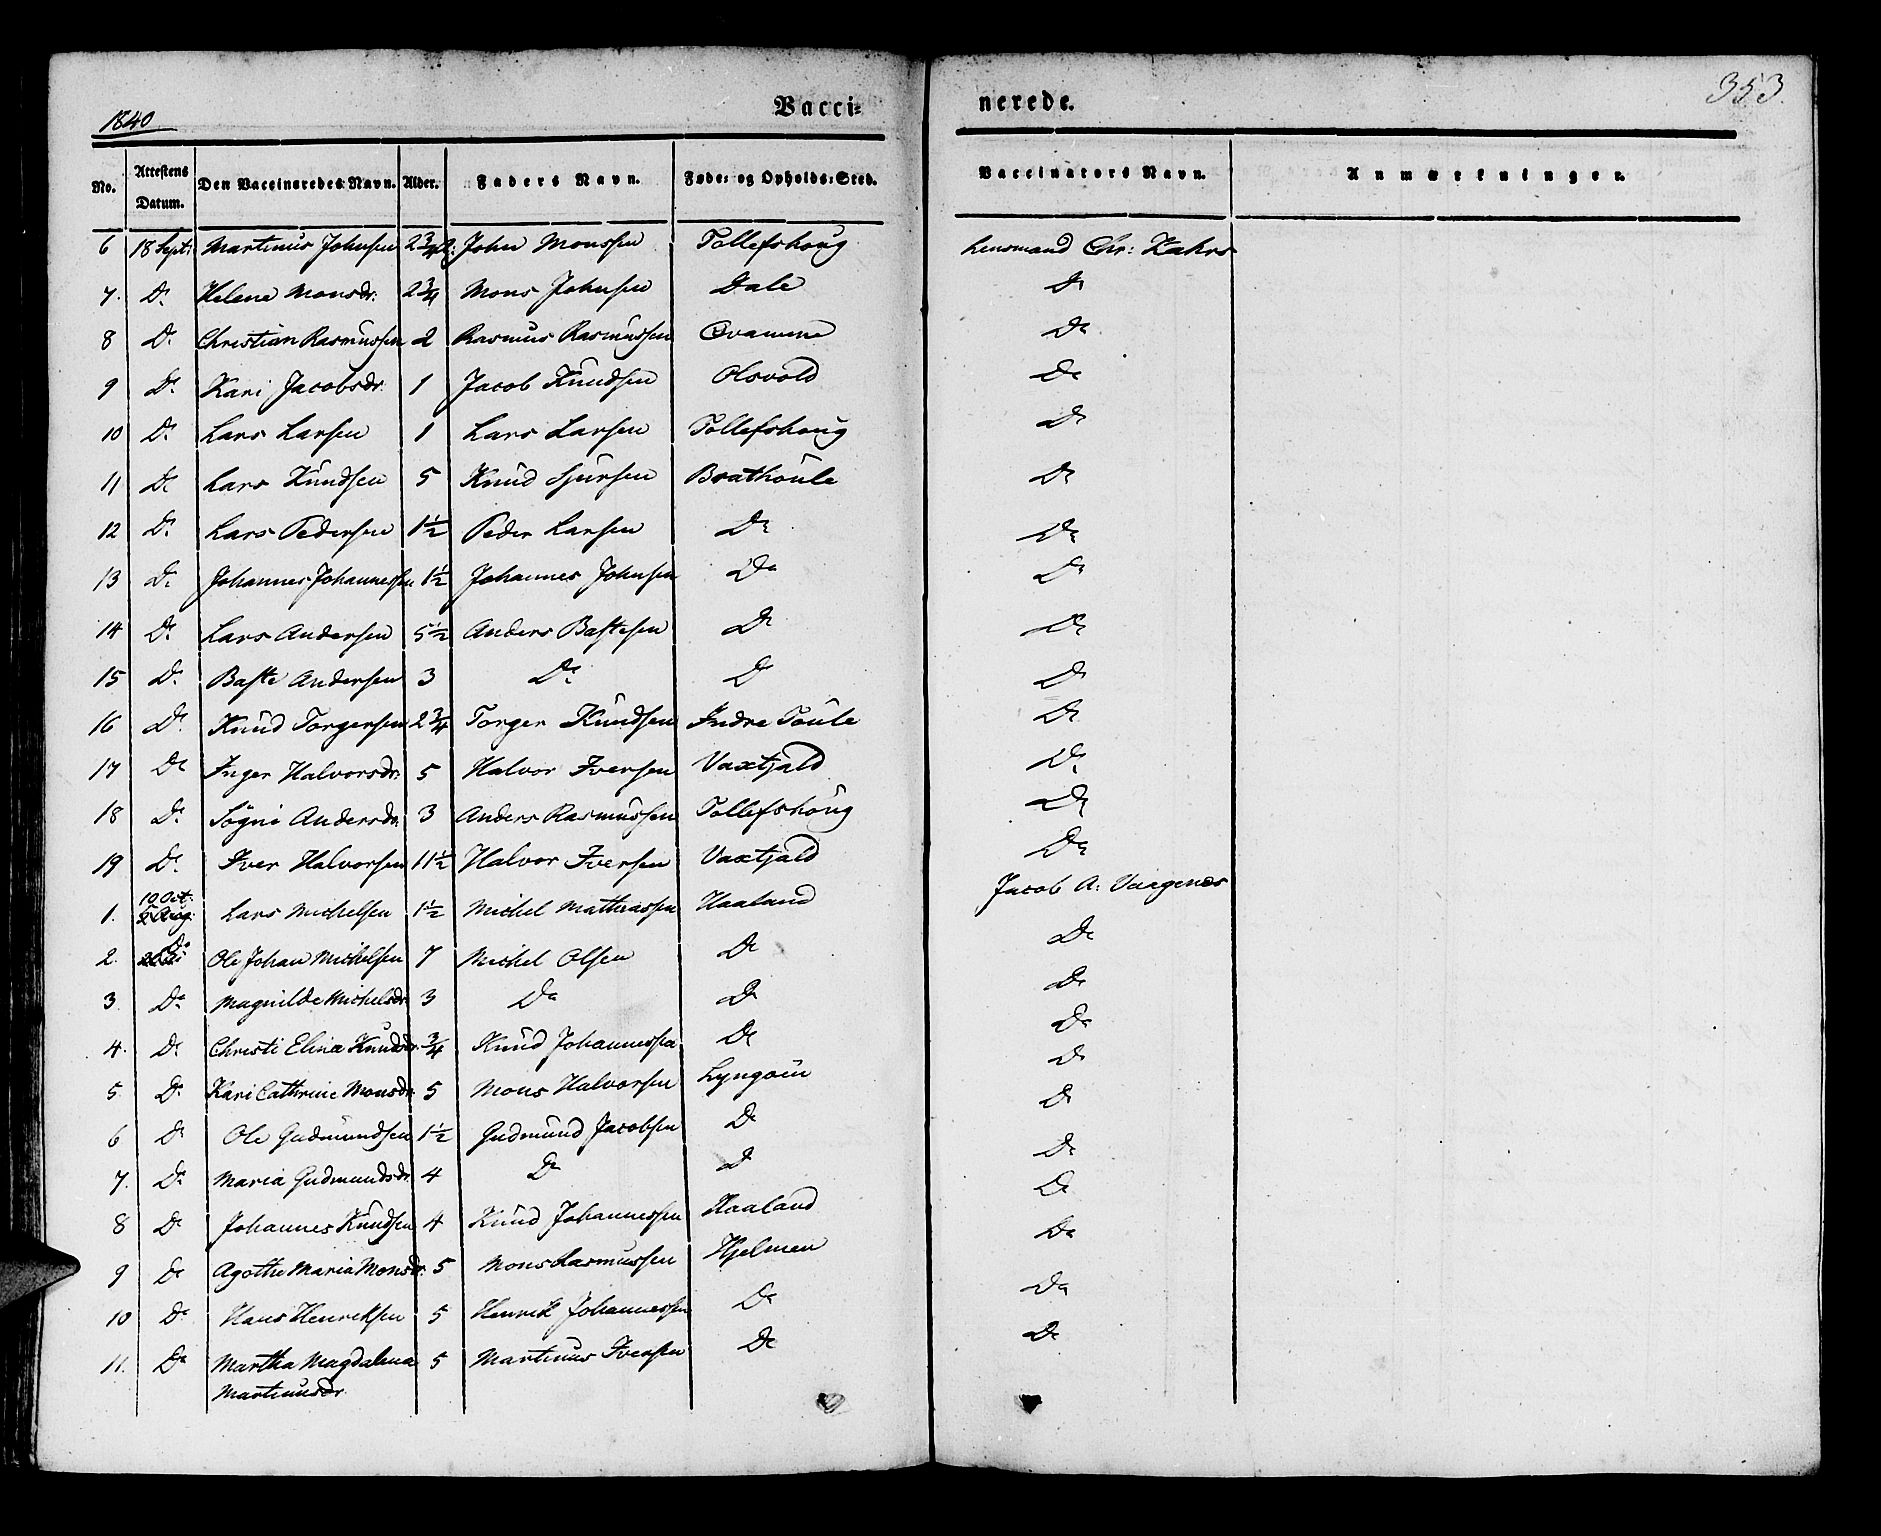 1840 Vacci= nerede. 353.
No. Attestens Datum. Den Vaccineredes Navn. Alder. Faders Navn. Føde= og Opholds=Sted. Vaccinators Navn. Anmærkninger.
6 18 Sept: Martinus Johnsen 2 3/4 John Monssen Tollefshoug Lensmand Chr: Zahrs
7. Do Helene Monsdr: 2 3/4 Mons Johnsen Dale Do
8 Do Christian Rasmussen 2 Rasmus Rasmussen Qvamme Do
9 Do Kari Jacobsdr: 1 Jacob Knudsen Olsvold Do
10 Do Lars Larsen 1 Lars Larsen Tollefshoug Do
11 Do Lars Knudsen 5 Knud Sjursen Brathoule Do
12 Do Lars Pedersen 1 1/2 Peder Larsen Do Do
13 Do Johannes Johannessen 1 1/2 Johannes Johnsen Do Do
14 Do Lars Andersen 5 1/2 Anders Bastesen Do Do
15 Do Baste Andersen 3 Do Do Do
16 Do Knud Torgersen 2 3/4 Torger Knudsen Indre Toule Do
17 Do Inger Halvorsdr: 5 Halvor Iversen Vaxtjald Do
18 Do Sögni Andersdr: 3 Anders Rasmussen Tollefshoug Do
19 Do Iver Halvorsen 11 1/2 Halvor Iversen Vaxtjald Do
1. 19 Oct: Lars Michelsen 1 1/2 Michel Mathiassen Haaland Jacob A: Vaagenes
2. Do Ole Johan Michelsen 7 Michel Olsen Do Do
3 Do Magnilde Michelsdr: 3 Do Do Do
4. Do Christi Elina Knudsdr: 3/4 Knud Johannessen Do Do
5 Do Kari Cathrine Monsdr: 5 Mons Halvorsen Lyngöin Do
6 Do Ole Gudmundsen 1 1/2 Gudmund Jacobsen Do Do
7. Do Maria Gudmundsdr: 4 Do Do Do
8 Do Johannes Knudsen 4 Knud Johannessen Haaland Do
9 Do Agothe Maria Monsdr: 5 Mons Rasmussen Hjelmen Do
10 Do Hans Henriksen 5 Henrik Johannessen Do Do
11. Do Martha Magdalena 5 Martinus Iversen Do Do
Martinusdr: